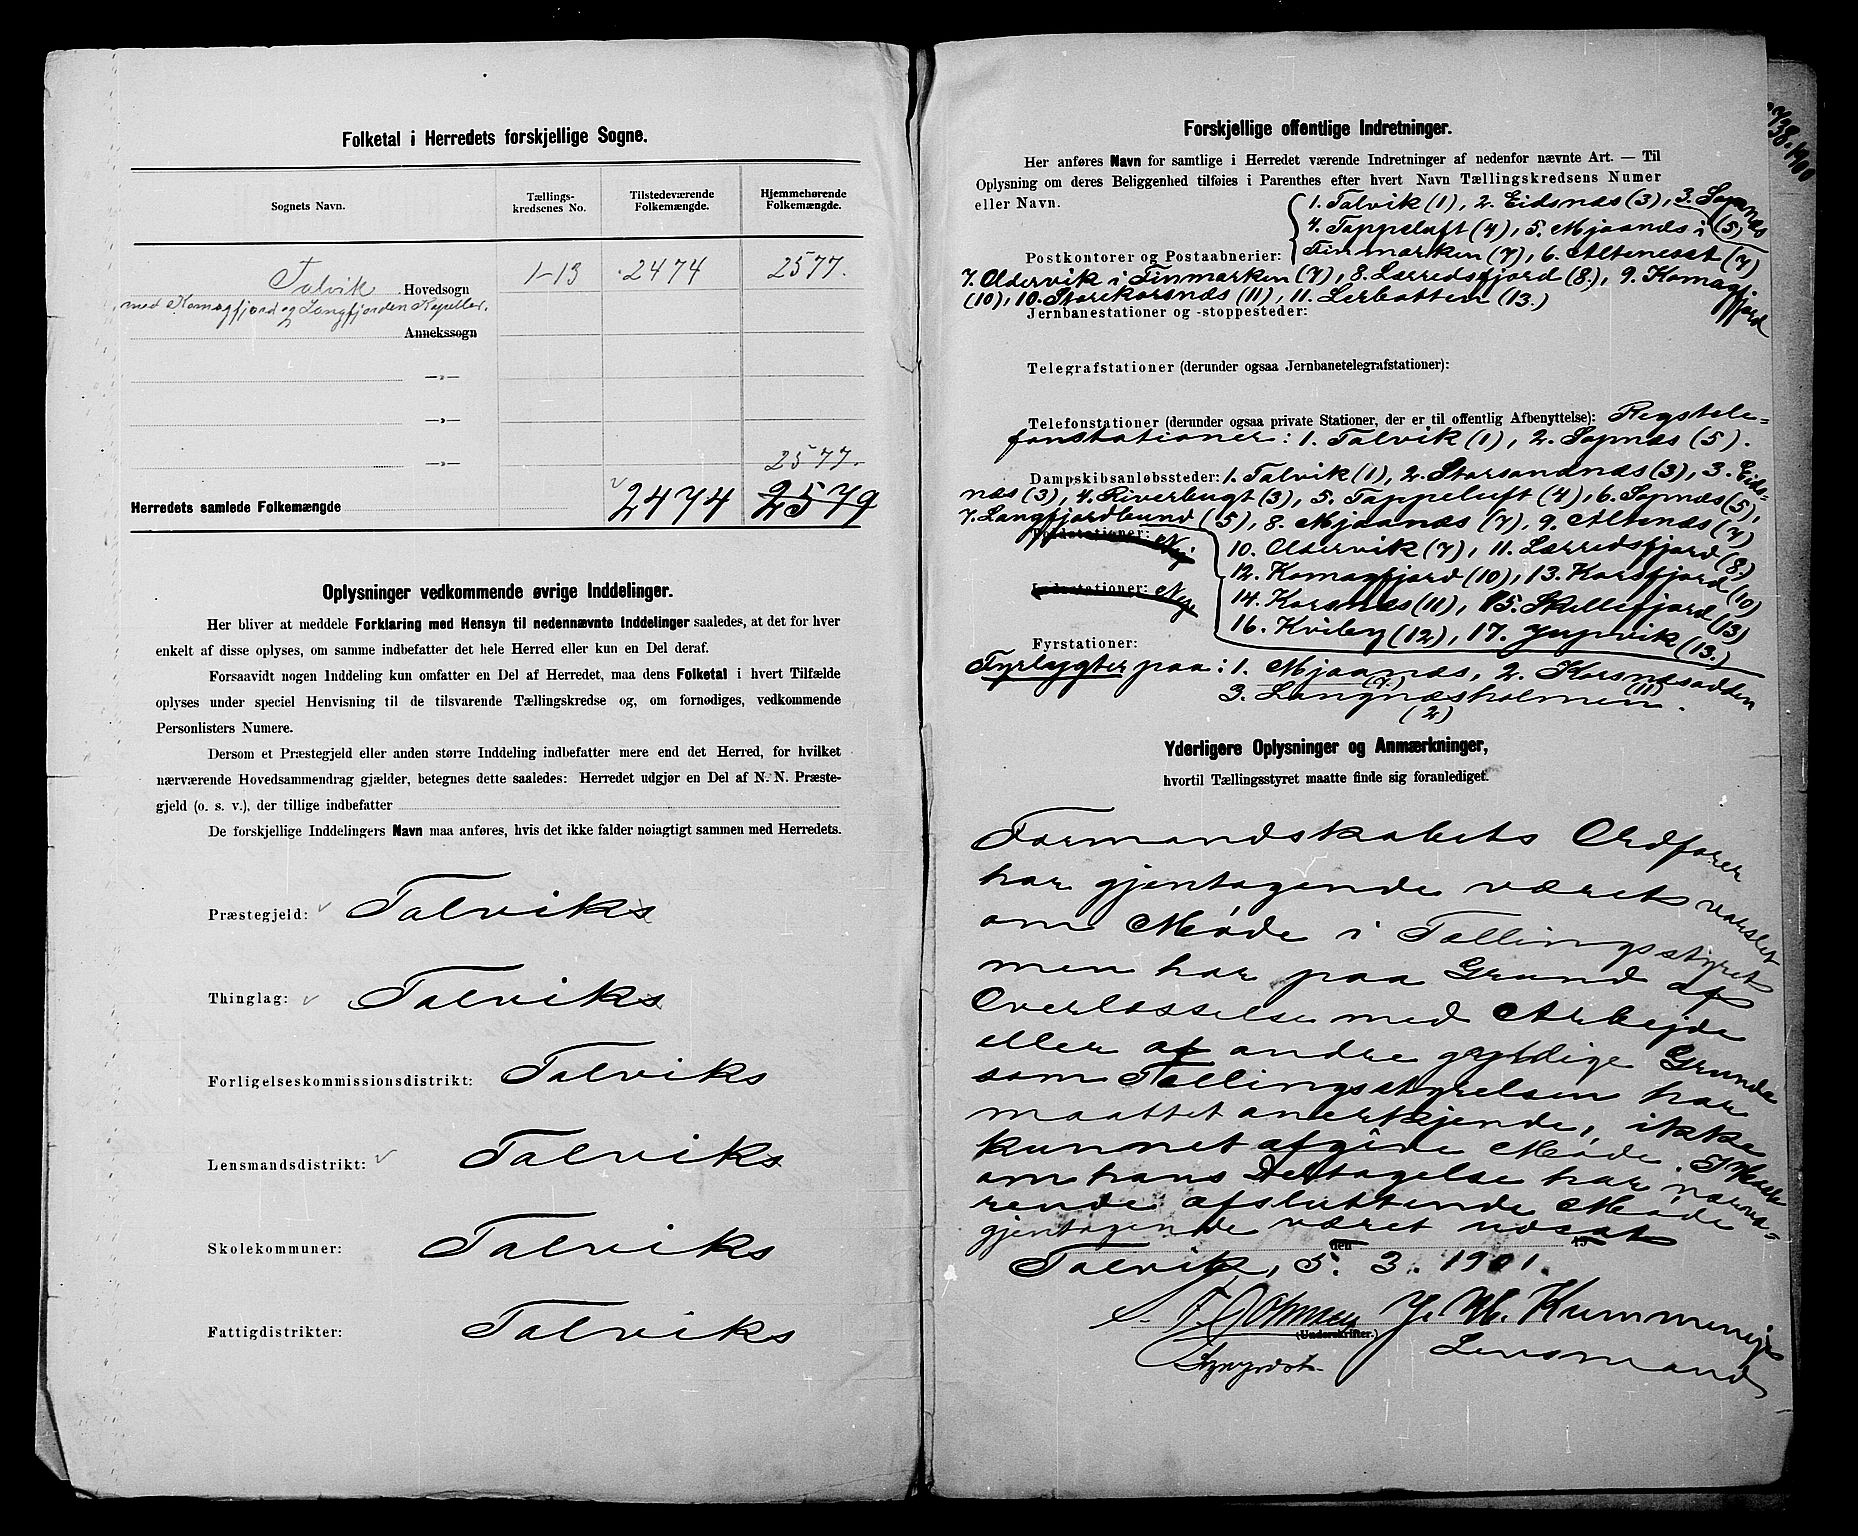 Folketal i Herredets forskjellige Sogne.
Sognets Navn.
Tællings-
kredsenes No.
Tilstedeværende
Folkemængde.
Hjemmehørende
Folkemængde.
Talvik Hovedsogn 1-13 2474 2577.
med Komagfjord og Langfjorden Kapeller.
Annekssogn
—„—
—„—
2577.
—„—
Herredets samlede Folkemængde 2474 2579
Oplysninger vedkommende øvrige Inddelinger.
Her bliver at meddele Forklaring med Hensyn til nedennævnte Inddelinger saaledes, at det for hver
enkelt af disse oplyses, om samme indbefatter det hele Herred eller kun en Del deraf.
Forsaavidt nogen Inddeling kun omfatter en Del af Herredet, maa dens Folketal i hvert Tilfælde
oplyses under speciel Henvisning til de tilsvarende Tællingskredse og, om fornødiges, vedkommende
Personlisters Numere.
Dersom et Præstegjeld eller anden større Inddeling indbefatter mere end det Herred, for hvilket
nærværende Hovedsammendrag gjælder, betegnes dette saaledes: Herredet udgjør en Del af N. N. Præste-
gjeld (o. s. v.), der tillige indbefatter
De forskjellige Inddelingers Navn maa anføres, hvis det ikke falder nøiagtigt sammen med Herredets.
Præstegjeld: Talviks
Thinglag: Talviks
Forligelseskommissionsdistrikt: Talviks
Lensmandsdistrikt: Talviks
Skolekommuner: Talviks
Fattigdistrikter: Talviks
Forskjellige offentlige Indretninger.
Her anføres Navn for samtlige i Herredet værende Indretninger af nedenfor nævnte Art. — Til
Oplysning om deres Beliggenhed tilføies i Parenthes efter hvert Navn Tællingskredsens Numer
eller Navn.
1. Talvik (1), 2. Eidsnæs (3), 3. Sopnæs (5)
4. Tappeluft (4), 5. Mjaanæs i
Postkontorer og Postaabnerier: Finmarken (7), 6. Altenæst (7)
7. Oldervik i Finmarken (7), 8. Lærredsfjord (8), 9. Komagfjord
(10), 10. Storekorsnæs (11), 11. Lerbotten (13.)
Jernbanestationer og -stoppesteder:
Telegrafstationer (derunder ogsaa Jernbanetelegrafstationer):
Telefonstationer (derunder ogsaa private Stationer, der er til offentlig Afbenyttelse): Rigstele-
fonstationer: 1. Talvik (1), 2. Sopnæs (5).
Dampskibsanløbssteder: 1. Talvik (1), 2. Storsandnæs (3), 3. Eids-
næs (3), 4. Riverbugt (3), 5. Tappeluft (4), 6. Sopnæs (5),
7. Langfjordbund (5), 8. Mjaanæs (7), 9. Altenæs (7)
10. Oldervik (7), 11. Lærredsfjord (8.)
12. Komagfjord (10), 13. Korsfjord (10)
14. Korsnæs (11), 15. Skillefjord (13)
16. Kviby (12), 17. Jupvik (13.)
Fyrstationer:
Fyrlygter paa: 1. Mjaanæs, (7.) 2. Korsnæsodden (11)
3. Langnæsholmen. (2)
Yderligere Oplysninger og Anmærkninger,
hvortil Tællingsstyret maatte finde sig foranlediget.
Formandskabets Ordfører
har gjentagende været varslet
om Møde i Tællingsstyret
men har paa Grund af
Overlæsselse med Arbejde
eller af andre gyldige Grunde
som Tællingsstyrelsen har
maattet anerkjende, ikke
kunnet afgive Møde. I Haab
om hans Deltagelse har nærvæ-
rende afsluttende Møde
gjentagende været udsat
den 19
Talvik, 5. 3. 1901.
(Underskrifter.)
Lensmand